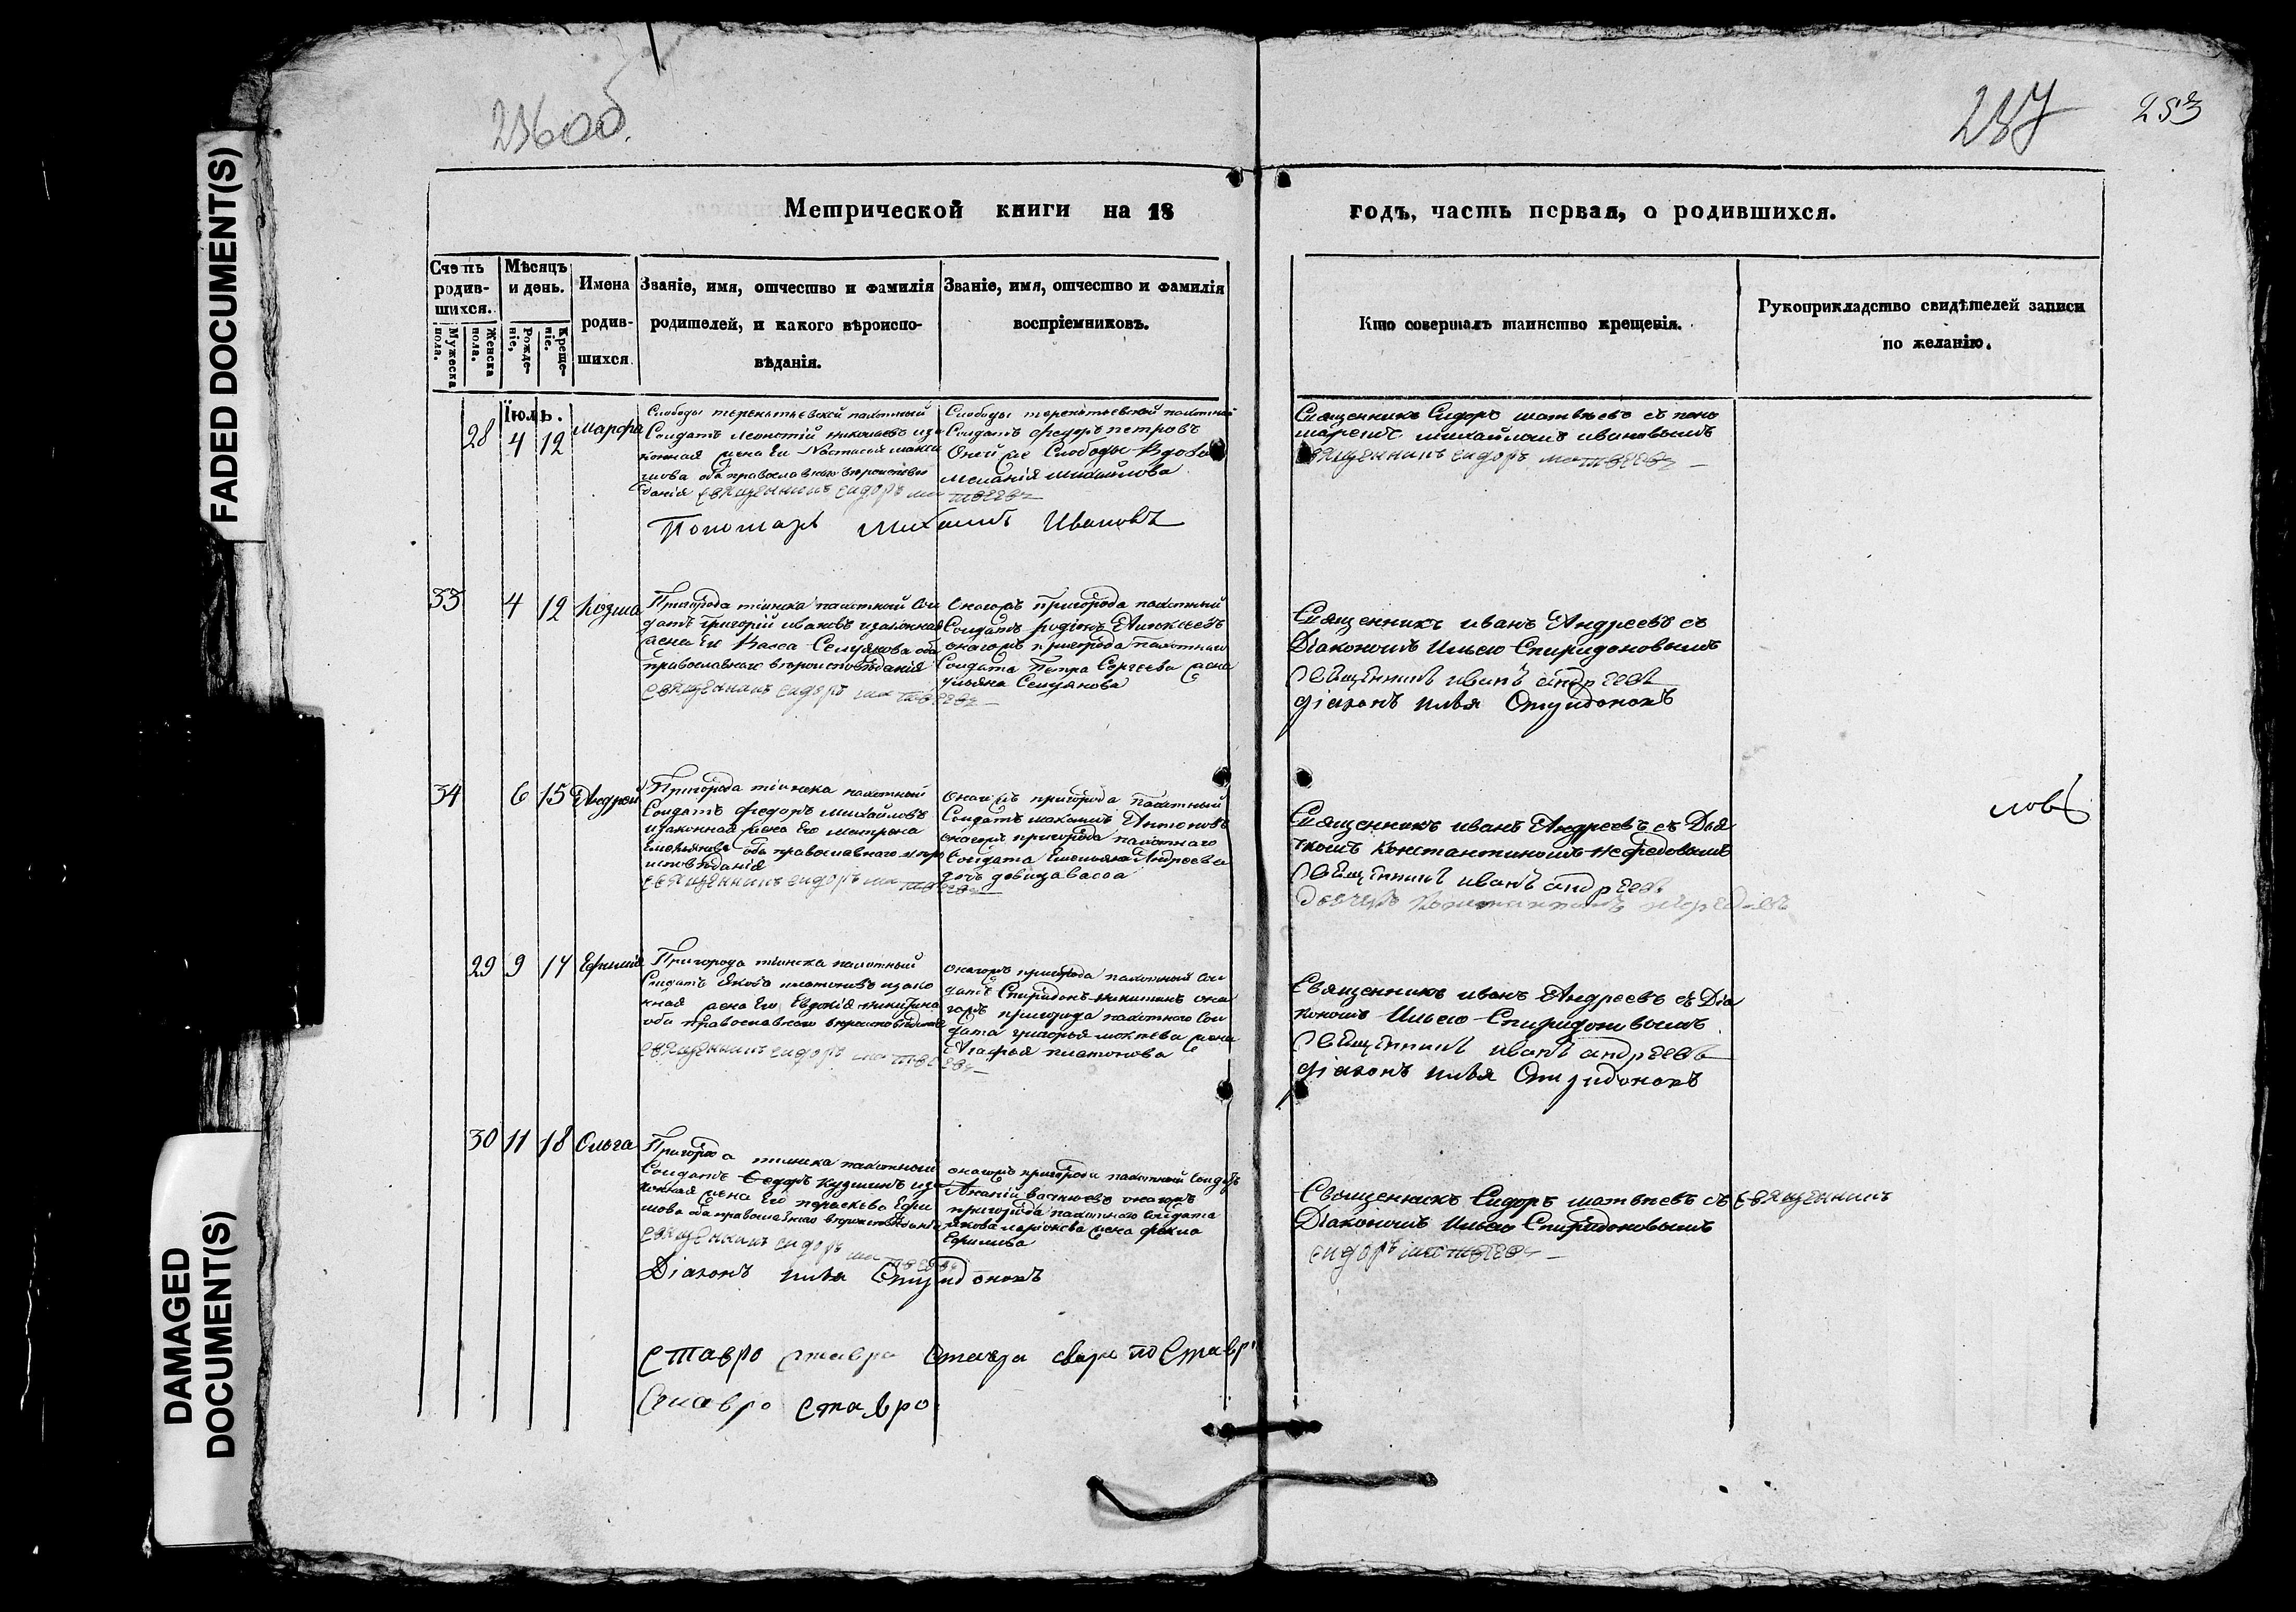 FADED DOCUMENT(S)
DAMAGED
DOCUMENT(S)
236об.
237
253
Метрической книги на 18
годъ, часть первая, о родившихся.
Счетъ
родив-
шихся.
Мужеска
пола.
Женска
пола.
Мѣсяцъ
и день.
Рожде-
ніе,
Креще-
ніе.
Имена
родив-
шихся
Званіе, имя, отчество и фамилія
родителей, и какого вѣроиспо-
вѣданія.
Званіе, имя, отчество и фамилія
воспріемниковъ.
Кто совершалъ таинство крещенія.
Рукоприкладство свидѣтелей записи
по желанію.
Іюль.
28 4 12 Марфа
Слободы терентьевской пахотный
Солдатъ Леонтій николаевъ иза
конная жена Ея Настасья макси
мова оба православнаго вѣроисповѣ
данія священникъ сидоръ матвеевъ
Пономарь Михаилъ Ивановъ
Слободы терентьевской пахотной
Солдатъ федоръ петровъ
Оной же Слободы Вдова
меланія михайлова
Священникъ Сидоръ матвѣевъ съ поно
маремъ михайломъ ивановымъ
священникъ сидоръ матвеевъ
33 4 12 Козма
Пригорода тіинска пахотный Сол
датъ григорій ивановъ изаконная
жена Ея Васса Семѵонова оба
православнаго вѣроисповѣданія
священникъ сидоръ матвеевъ
онагожъ пригорода пахотный
Солдатъ родіонъ Алексѣевъ
онагожъ пригорода пахотнаго
Солдата Петра Сергеева жена
ульяна Семѵонова
Священникъ иванъ Андреевъ съ
Діакономъ Ильею Спиридоновымъ
священникъ иванъ андреевъ
діаконъ илья Спиридоновъ
34 6 15 Андрей
Пригорода тіинска пахотный
Солдатъ федоръ михайловъ
изаконная жена Его матрона
Емельянова оба православнаго вѣро
исповѣданія
священникъ сидоръ матвеевъ
онагожъ пригорода пахотный
Солдатъ максимъ Антоновъ
онагожъ пригорода пахотнаго
Солдата Емельяна Андреева
дочь девица васса
Священникъ иванъ Андреевъ съ Дья
чкомъ Константиномъ нефедовымъ
священникъ иванъ андреевъ
дьячекъ Константинъ нефедовъ
ловъ
29 9 17 Ефимія
Пригорода тіинска пахотный
Солдатъ Яковъ платоновъ изако
нная жена Его Евдокія никитина
оба православнаго вѣроисповѣданія
священникъ сидоръ матвеевъ
онагожъ пригорода пахотный Сол
датъ Спиридонъ никитинъ она
гожъ пригорода пахотнаго Сол
дата григорья мокѣева жена
Агафья платонова
Священникъ иванъ Андреевъ съ Діа
кономъ Ильею Спиридоновымъ
священникъ иванъ андреевъ
діаконъ илья Спиридоновъ
30 11 18 Ольга
Пригорода тіинска пахотный
Солдатъ Федоръ кузминъ иза
конная жена Его параскева Ефи
мова оба православнаго вѣроисповѣданія
священникъ сидоръ матвеевъ
Діаконъ илья Спиридоновъ
онагожъ пригорода пахотный Солдатъ
Ананій васильевъ онагожъ
пригорода пахотнаго Солдата
якова ларіонова жена фекла
Ефимова
Священникъ Сидоръ матвѣевъ съ
Діакономъ Ильею Спиридоновымъ
священникъ
сидоръ матвеевъ
ставро ставро
ставро ставро